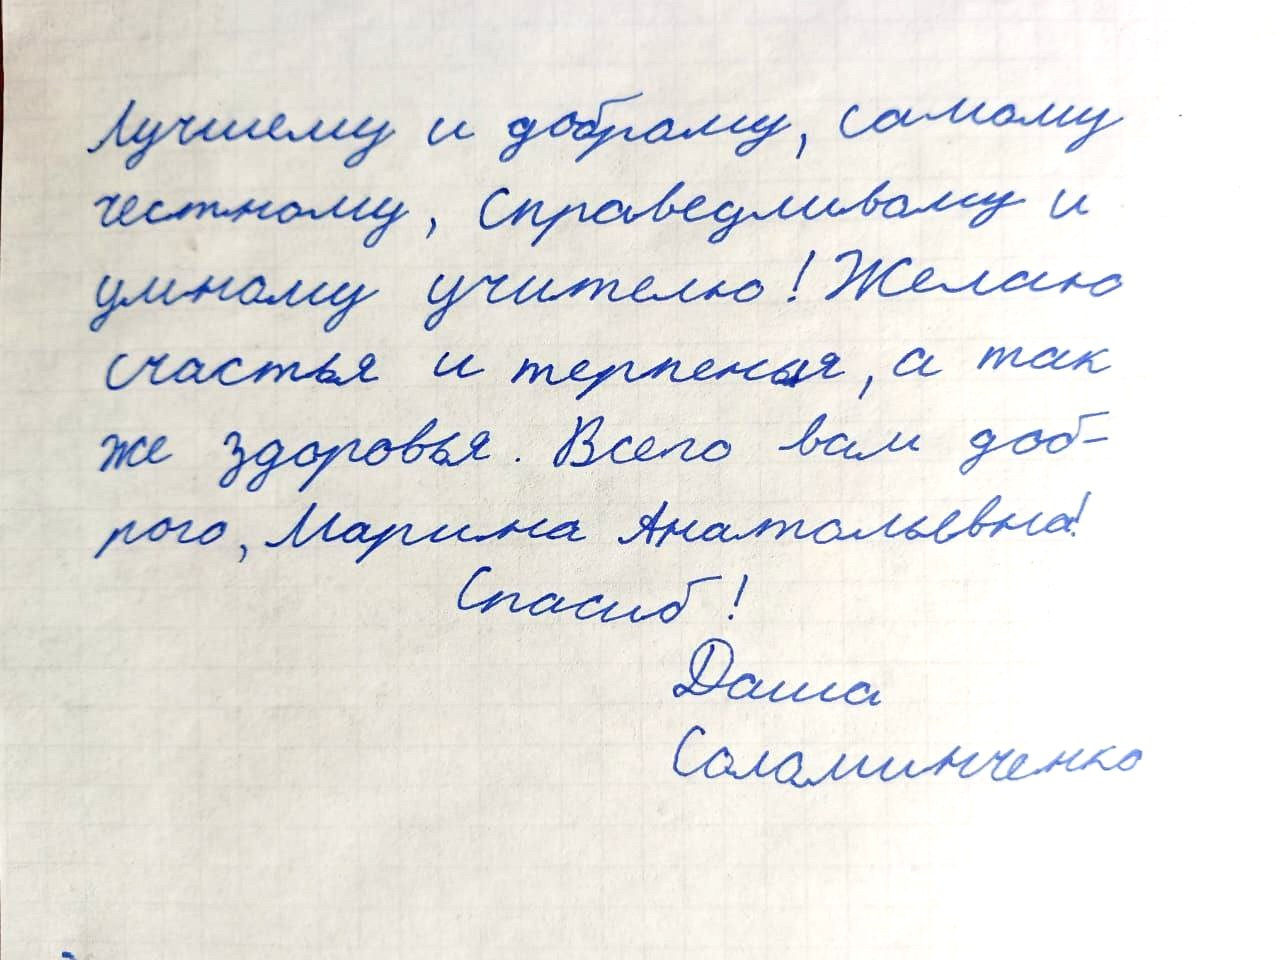 Лучшему и доброму, самому
честному, справедливому и
умному учителю! Желаю
счастья и терпенья, а так
же здоровья. Всего вам доб-
рого, Марина Анатольевна!
Спасиб!
Даша
Соломинченко